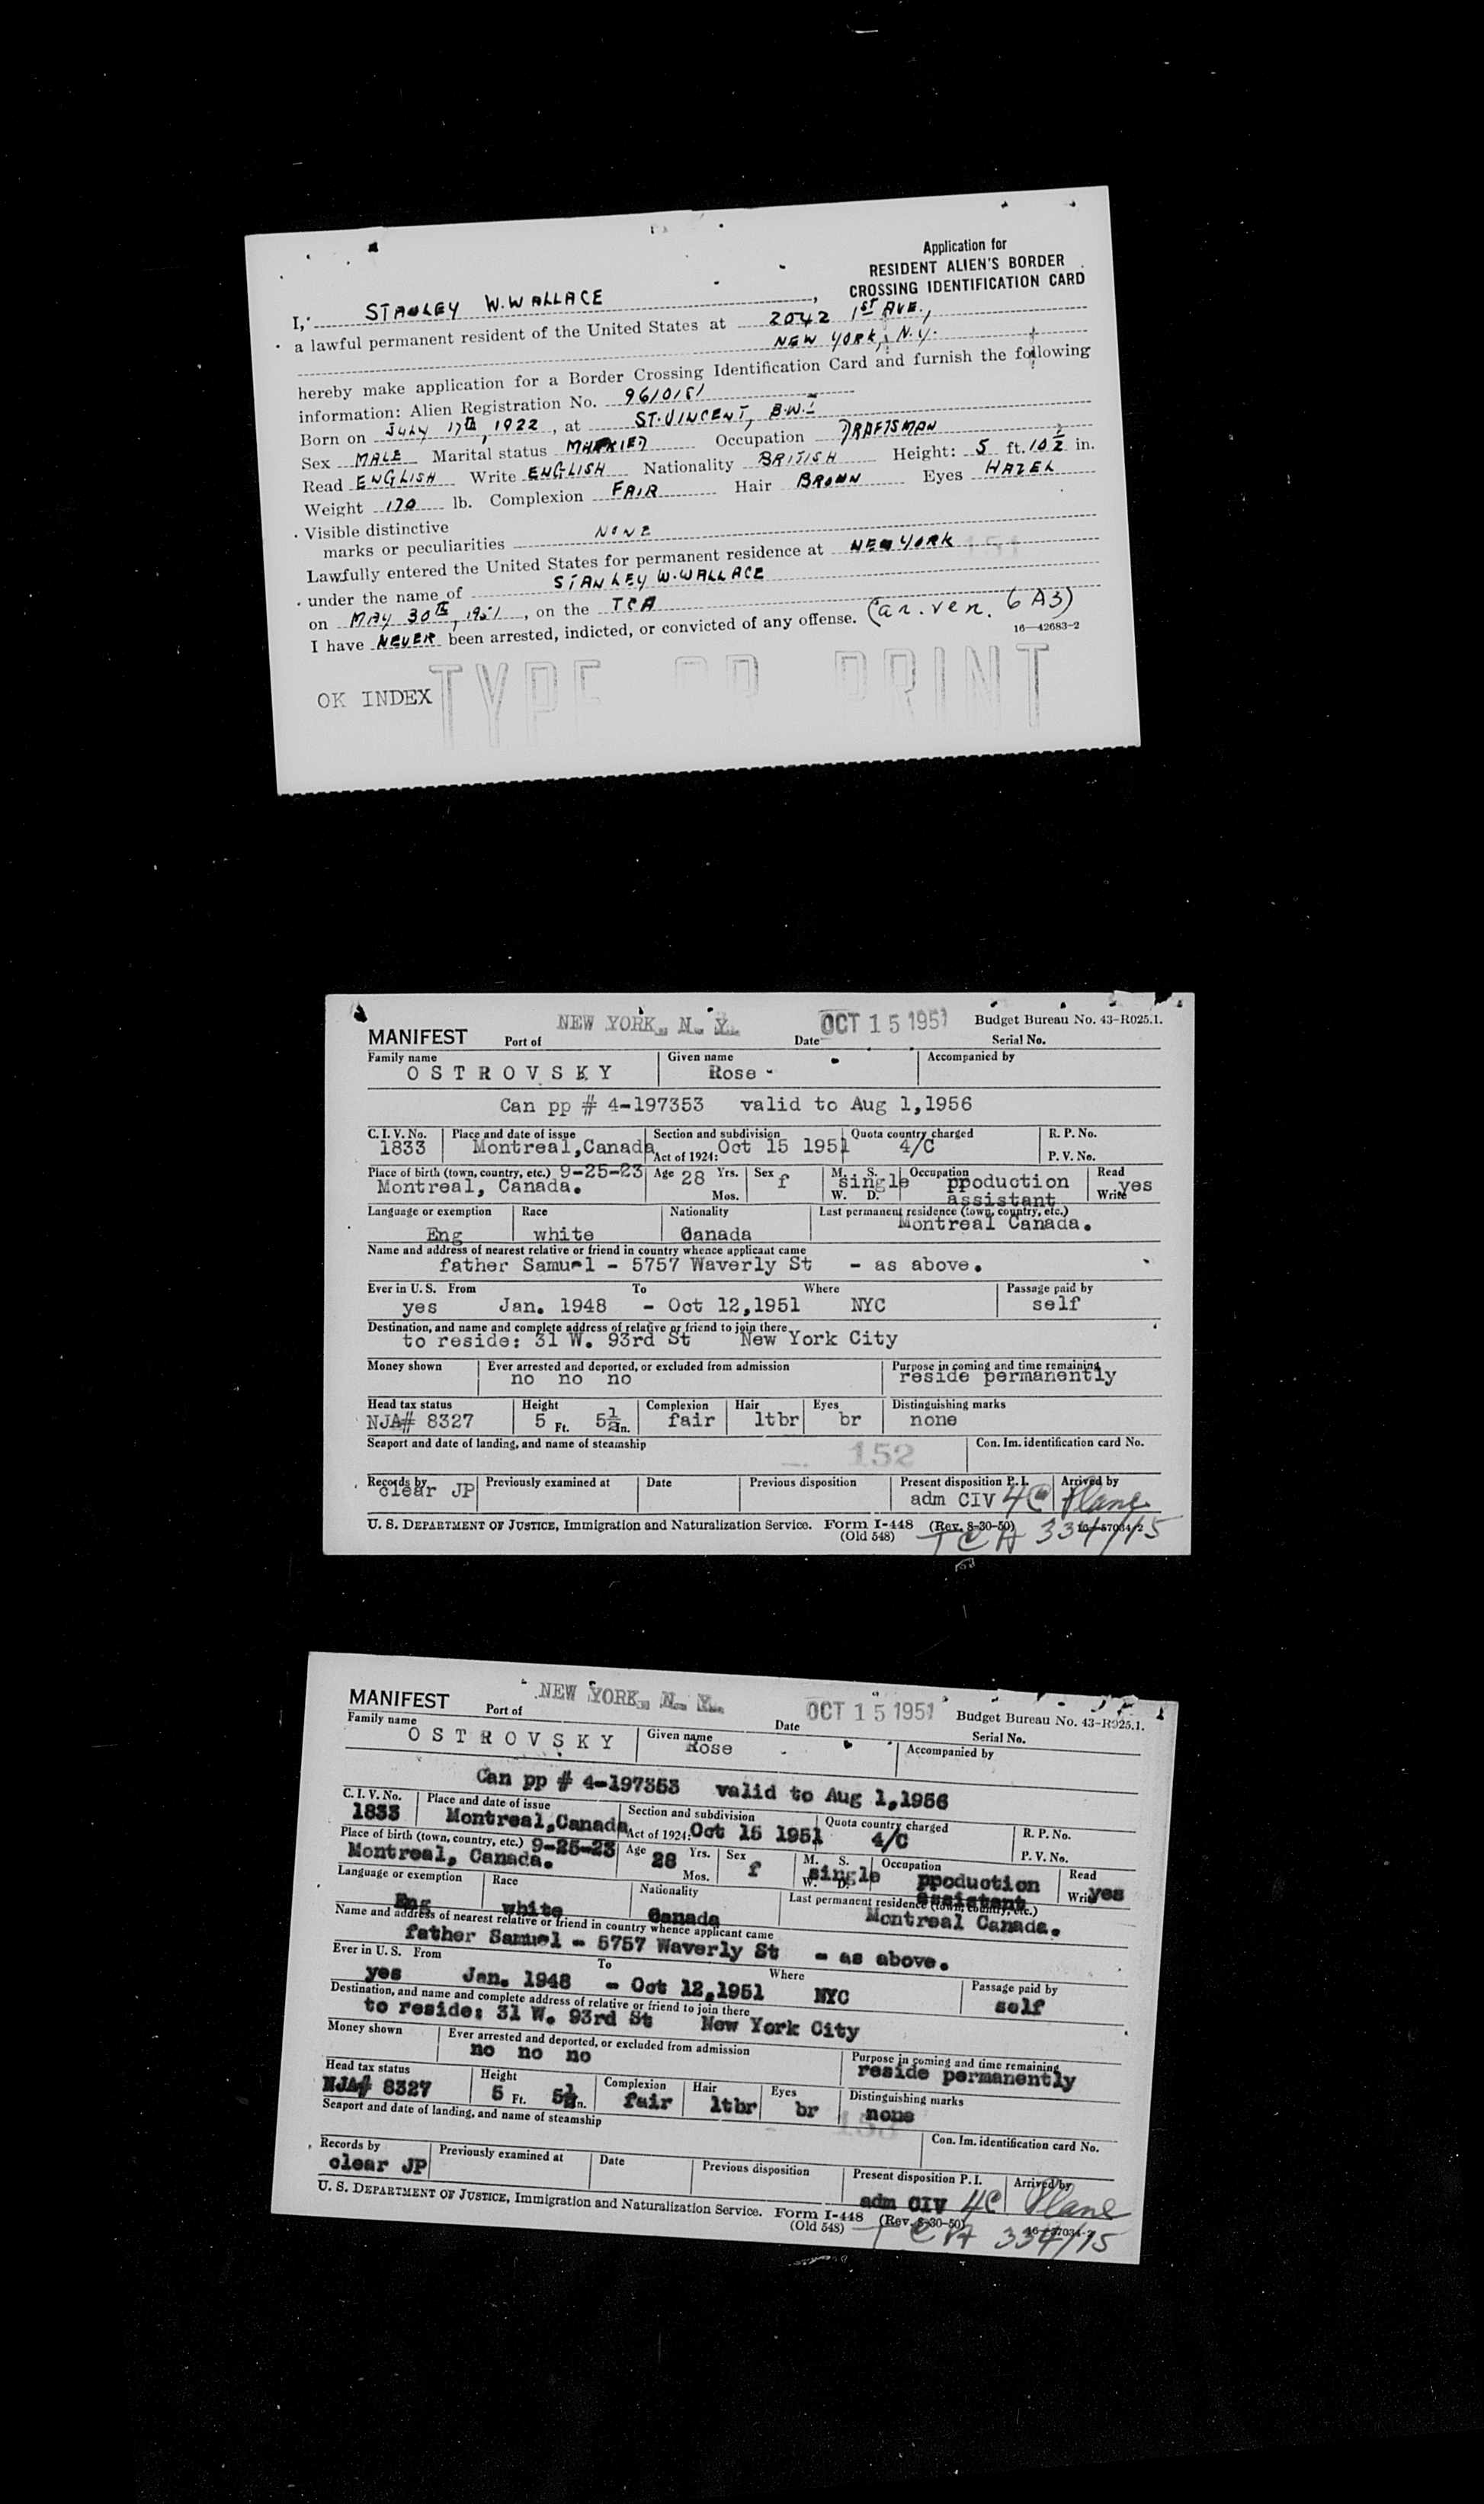 Application for
RESIDENT ALIEN'S BORDER
CROSSING IDENTIFICATION CARD
I, STANLEY W. WALLACE,
a lawful permanent resident of the United States at 2042 1ST AVE.,
NEW YORK, N.Y.
hereby make application for a Border Crossing Identification Card and furnish the following
information: Alien Registration No. 9610151
Born on JULY 17th, 1922, at ST. VINCENT, B.W.I
Sex MALE Marital status MARRIED Occupation DRAFTSMAN
Read ENGLISH Write ENGLISH Nationality BRITISH Height: 5 ft. 10 1/2 in.
Weight 170 lb. Complexion FAIR Hair BROWN Eyes HAZEL
Visible distinctive
marks or peculiarities NONE
Lawfully entered the United States for permanent residence at NEW YORK 151
under the name of STANLEY W. WALLACE
on MAY 30th, 1951, on the TCA
I have NEVER been arrested, indicted, or convicted of any offense. (ar. ver. 6 A3)
16—42683-2
OK INDEX TYPE OR PRINT
MANIFEST Port of NEW YORK, N. Y. Date OCT 15 1951 Budget Bureau No. 43-R025.1.
Serial No.
Family name Given name Accompanied by
OSTROVSKY Rose
Can pp # 4-197353 valid to Aug 1,1956
C. I. V. No. Place and date of issue Section and subdivision Quota country charged R. P. No.
1833 Montreal,Canada Act of 1924: Oct 15 1951 4/C P. V. No.
Place of birth (town, country, etc.) 9-25-23 Age 28 Yrs. Mos. Sex f M. S. W. D. single Occupation production assistant Read Write yes
Montreal, Canada.
Language or exemption Race Nationality Last permanent residence (town, country, etc.)
Eng white Canada Montreal Canada.
Name and address of nearest relative or friend in country whence applicant came
father Samuel - 5757 Waverly St - as above.
Ever in U. S. From To Where Passage paid by
yes Jan. 1948 - Oct 12,1951 NYC self
Destination, and name and complete address of relative or friend to join there
to reside: 31 W. 93rd St New York City
Money shown Ever arrested and deported, or excluded from admission Purpose in coming and time remaining
no no no reside permanently
Head tax status Height Complexion Hair Eyes Distinguishing marks
NJA# 8327 5 Ft. 5 1/2 In. fair ltbr br none
Seaport and date of landing, and name of steamship 152 Con. Im. identification card No.
Records by Previously examined at Date Previous disposition Present disposition P. I. Arrived by
clear JP adm CIV 4C Plane
U. S. DEPARTMENT OF JUSTICE, Immigration and Naturalization Service. Form I-448 (Rev. 8-30-50) 16—57034-2
(Old 548) TCA 334/15
MANIFEST Port of NEW YORK, N. Y. Date OCT 15 1951 Budget Bureau No. 43-R025.1.
Serial No.
Family name Given name Accompanied by
OSTROVSKY Rose
Can pp # 4-197353 valid to Aug 1,1956
C. I. V. No. Place and date of issue Section and subdivision Quota country charged R. P. No.
1833 Montreal,Canada Act of 1924: Oct 15 1951 4/C P. V. No.
Place of birth (town, country, etc.) 9-25-23 Age 28 Yrs. Mos. Sex f M. S. W. D. single Occupation production assistant Read Write yes
Montreal, Canada.
Language or exemption Race Nationality Last permanent residence (town, country, etc.)
Eng white Canada Montreal Canada.
Name and address of nearest relative or friend in country whence applicant came
father Samuel - 5757 Waverly St - as above.
Ever in U. S. From To Where Passage paid by
yes Jan. 1948 - Oct 12,1951 NYC self
Destination, and name and complete address of relative or friend to join there
to reside: 31 W. 93rd St New York City
Money shown Ever arrested and deported, or excluded from admission Purpose in coming and time remaining
no no no reside permanently
Head tax status Height Complexion Hair Eyes Distinguishing marks
NJA# 8327 5 Ft. 5 1/2 In. fair ltbr br none
Seaport and date of landing, and name of steamship 153 Con. Im. identification card No.
Records by Previously examined at Date Previous disposition Present disposition P. I. Arrived by
clear JP adm CIV 4C Plane
U. S. DEPARTMENT OF JUSTICE, Immigration and Naturalization Service. Form I-448 (Rev. 8-30-50) 16—57034-2
(Old 548) TCA 334/15